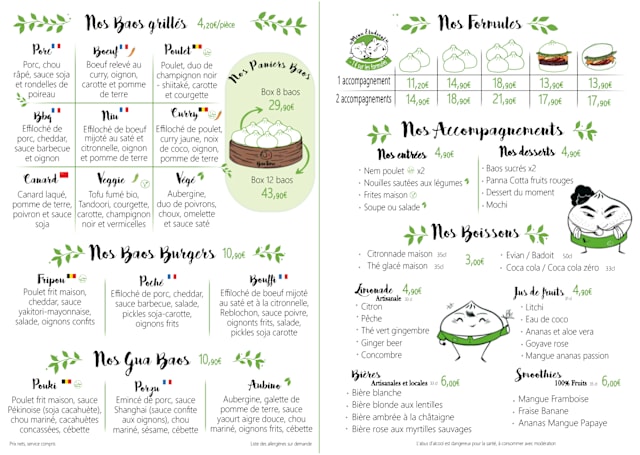 Nos Baos grillés 4,20€/pièce
Porc
Porc, chou
râpé, sauce soja
et rondelles de
poireau
Boeuf
Boeuf relevé au
curry, oignon,
carotte et pomme
de terre
Poulet
Poulet, duo de
champignon noir
- shiitaké, carotte
et courgette
Bbq
Effiloché de
porc, cheddar,
sauce barbecue
et oignon
Niu
Effiloché de boeuf
mijoté au saté et
citronnelle, oignon
et pomme de terre
Curry
Effiloché de poulet,
curry jaune, noix
de coco, oignon,
pomme de terre
Canard
Canard laqué,
pomme de terre,
poivron et sauce
soja
Veggie
Tofu fumé bio,
Tandoori, courgette,
carotte, champignon
noir et vermicelles
Végé
Aubergine,
duo de poivrons,
choux, omelette
et sauce saté
Nos Paniers Baos
Box 8 baos
29,90€
Box 12 baos
43,90€
Nos Baos Burgers 10,90€
Fripon
Poulet frit maison,
cheddar, sauce
yakitori-mayonnaise,
salade, oignons confits
Poché
Effiloché de porc, cheddar,
sauce barbecue, salade,
pickles soja-carotte,
oignons frits
Bouffi
Effiloché de boeuf mijoté
au saté et à la citronnelle,
Reblochon, sauce poivre,
oignons frits, salade,
pickles soja carotte
Nos Gua Baos 10,90€
Pouki
Poulet frit maison, sauce
Pékinoise (soja cacahuète),
chou mariné, cacahuètes
concassées, cébette
Porzu
Emincé de porc, sauce
Shanghai (sauce confite
aux oignons), chou
mariné, sésame, cébette
Aubino
Aubergine, galette de
pomme de terre, sauce
yaourt aigre douce, chou
mariné, oignons frits, cébette
Prix nets, service compris
Liste des allergènes sur demande
Nos Formules
1 accompagnement 11,20€ 14,90€ 18,90€ 13,90€ 13,90€
2 accompagnements 14,90€ 18,90€ 21,90€ 17,90€ 17,90€
Nos Accompagnements
Nos entrées 4,90€
• Nem poulet x2
• Nouilles sautées aux légumes
• Frites maison
• Soupe ou salade
Nos desserts 4,90€
• Baos sucrés x2
• Panna Cotta fruits rouges
• Dessert du moment
• Mochi
Nos Boissons
• Citronnade maison 35cl
• Thé glacé maison 35cl
3,00€
• Evian / Badoit 50cl
• Coca cola / Coca cola zéro 33cl
Limonade 4,90€
Artisanale
• Citron
• Pêche
• Thé vert gingembre
• Ginger beer
• Concombre
Jus de fruits 4,90€
• Litchi
• Eau de coco
• Ananas et aloe vera
• Goyave rose
• Mangue ananas passion
Bières
Artisanales et locales 33 cl 6,00€
• Bière blanche
• Bière blonde aux lentilles
• Bière ambrée à la châtaigne
• Bière rose aux myrtilles sauvages
Smoothies
100% Fruits 6,00€
• Mangue Framboise
• Fraise Banane
• Ananas Mangue Papaye
L'abus d'alcool est dangereux pour la santé, à consommer avec modération